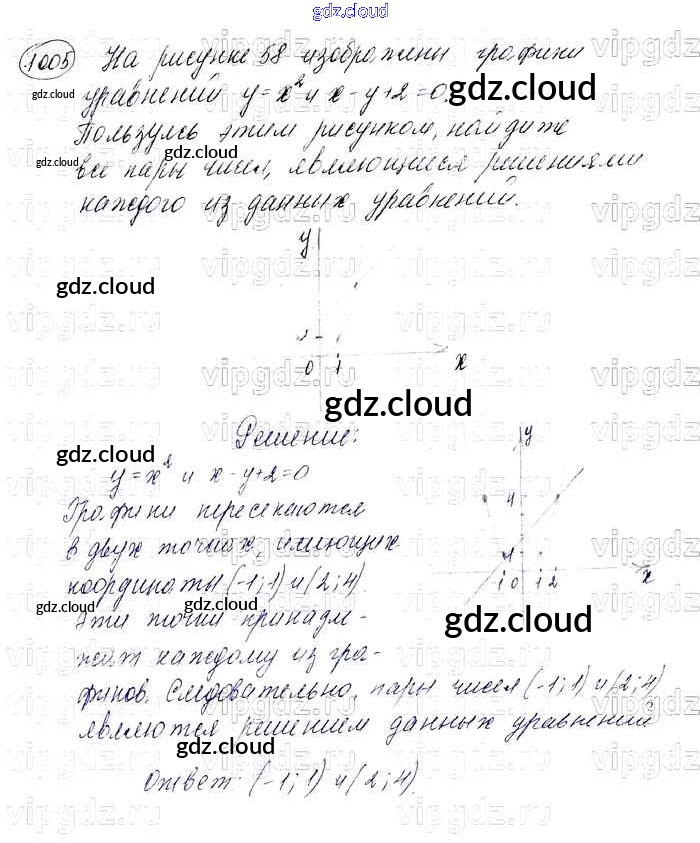 gdz.cloud
1005 На рисунке 58 изображены графики
уравнений y = x² и x - y + 2 = 0.
Пользуясь этим рисунком, найдите
все пары чисел, являющиеся решениями
каждого из данных уравнений.
y
0 1 x
Решение:
y = x² и x - y + 2 = 0
Графики пересекаются
в двух точках, имеющих
координаты (-1; 1) и (2; 4).
Эти точки принадле-
жат каждому из гра-
фиков. Следовательно, пары чисел (-1; 1) и (2; 4)
являются решением данных уравнений
y
4
1
-1 0 1 2 x
Ответ: (-1; 1) и (2; 4).
gdz.cloud
gdz.cloud
gdz.cloud
gdz.cloud
gdz.cloud
gdz.cloud
gdz.cloud
gdz.cloud
gdz.cloud
gdz.cloud
gdz.cloud
gdz.cloud
vipgdz.ru